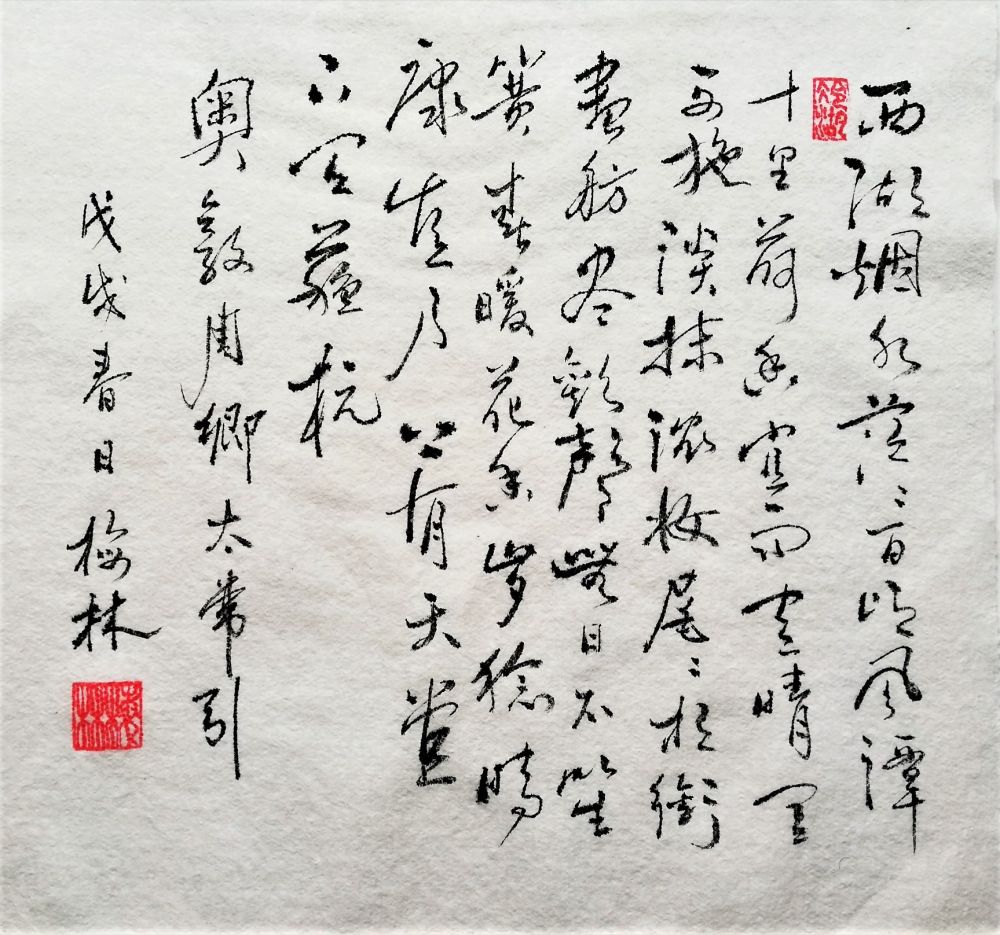 西湖烟水茫〻百顷风潭
十里荷香宜雨宜晴宜
西施淡抹浓妆尾〻相衔
畫舫尽歡聲無日不笙
簧春暖花香岁稔時
康真乃上有天堂
下有蘇杭
奥敦周卿太常引
戊戌春日梅林